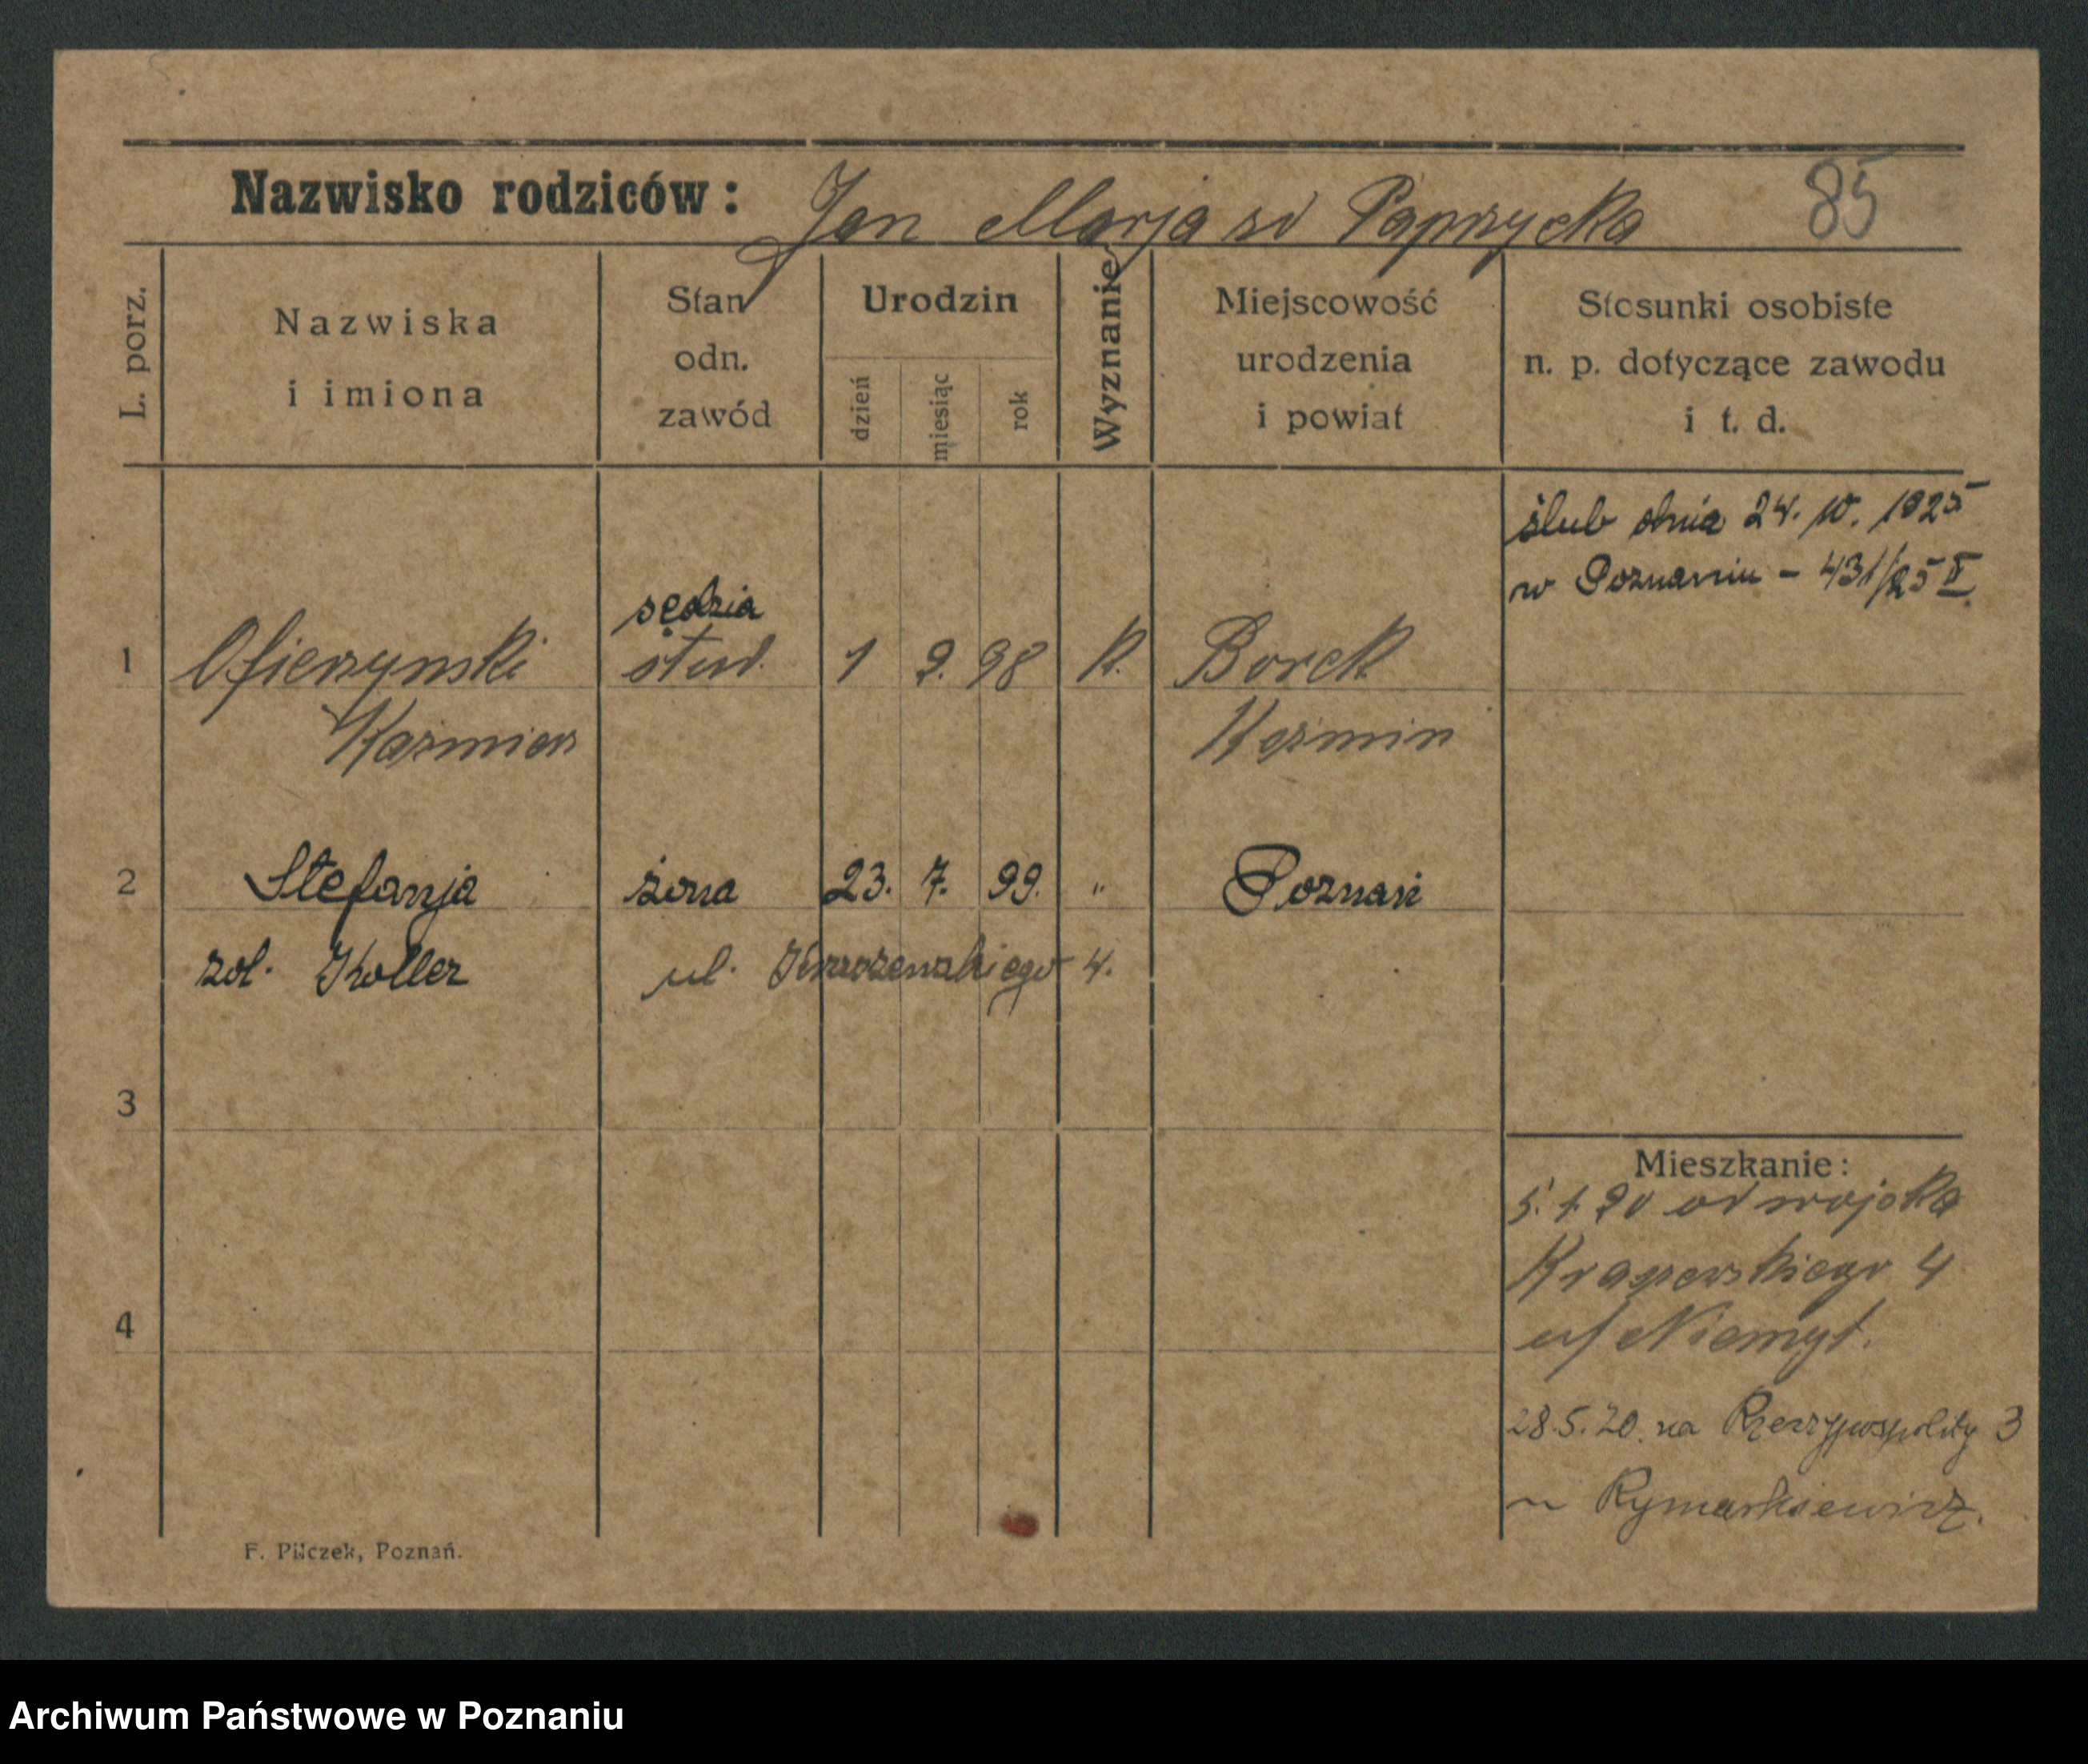 Nazwisko rodziców: Jan Marja zd Paprzycka 85
L. porz.
Nazwiska
i imiona
Stan
odn.
zawód
Urodzin
dzień
miesiąc
rok
Wyznanie
Miejscowość
urodzenia
i powiat
Stosunki osobiste
n. p. dotyczące zawodu
i t. d.
ślub dnia 24. 10. 1925
w Poznaniu – 431/25 II.
sędzia
1 Ofierzynski stud. 1 9. 98 K. Borek
Kazmierz Kozmin
2 Stefanja żona 23. 7. 99. " Poznań
zol. Koller ul. 4.
3
Mieszkanie:
5. 1. 20 od wojska
Kraszewskiego 4
u/
4
28.5.20. na Rzeczypospolity 3
u Rymarkiewicz.
F. Pilczek, Poznań.
Archiwum Państwowe w Poznaniu